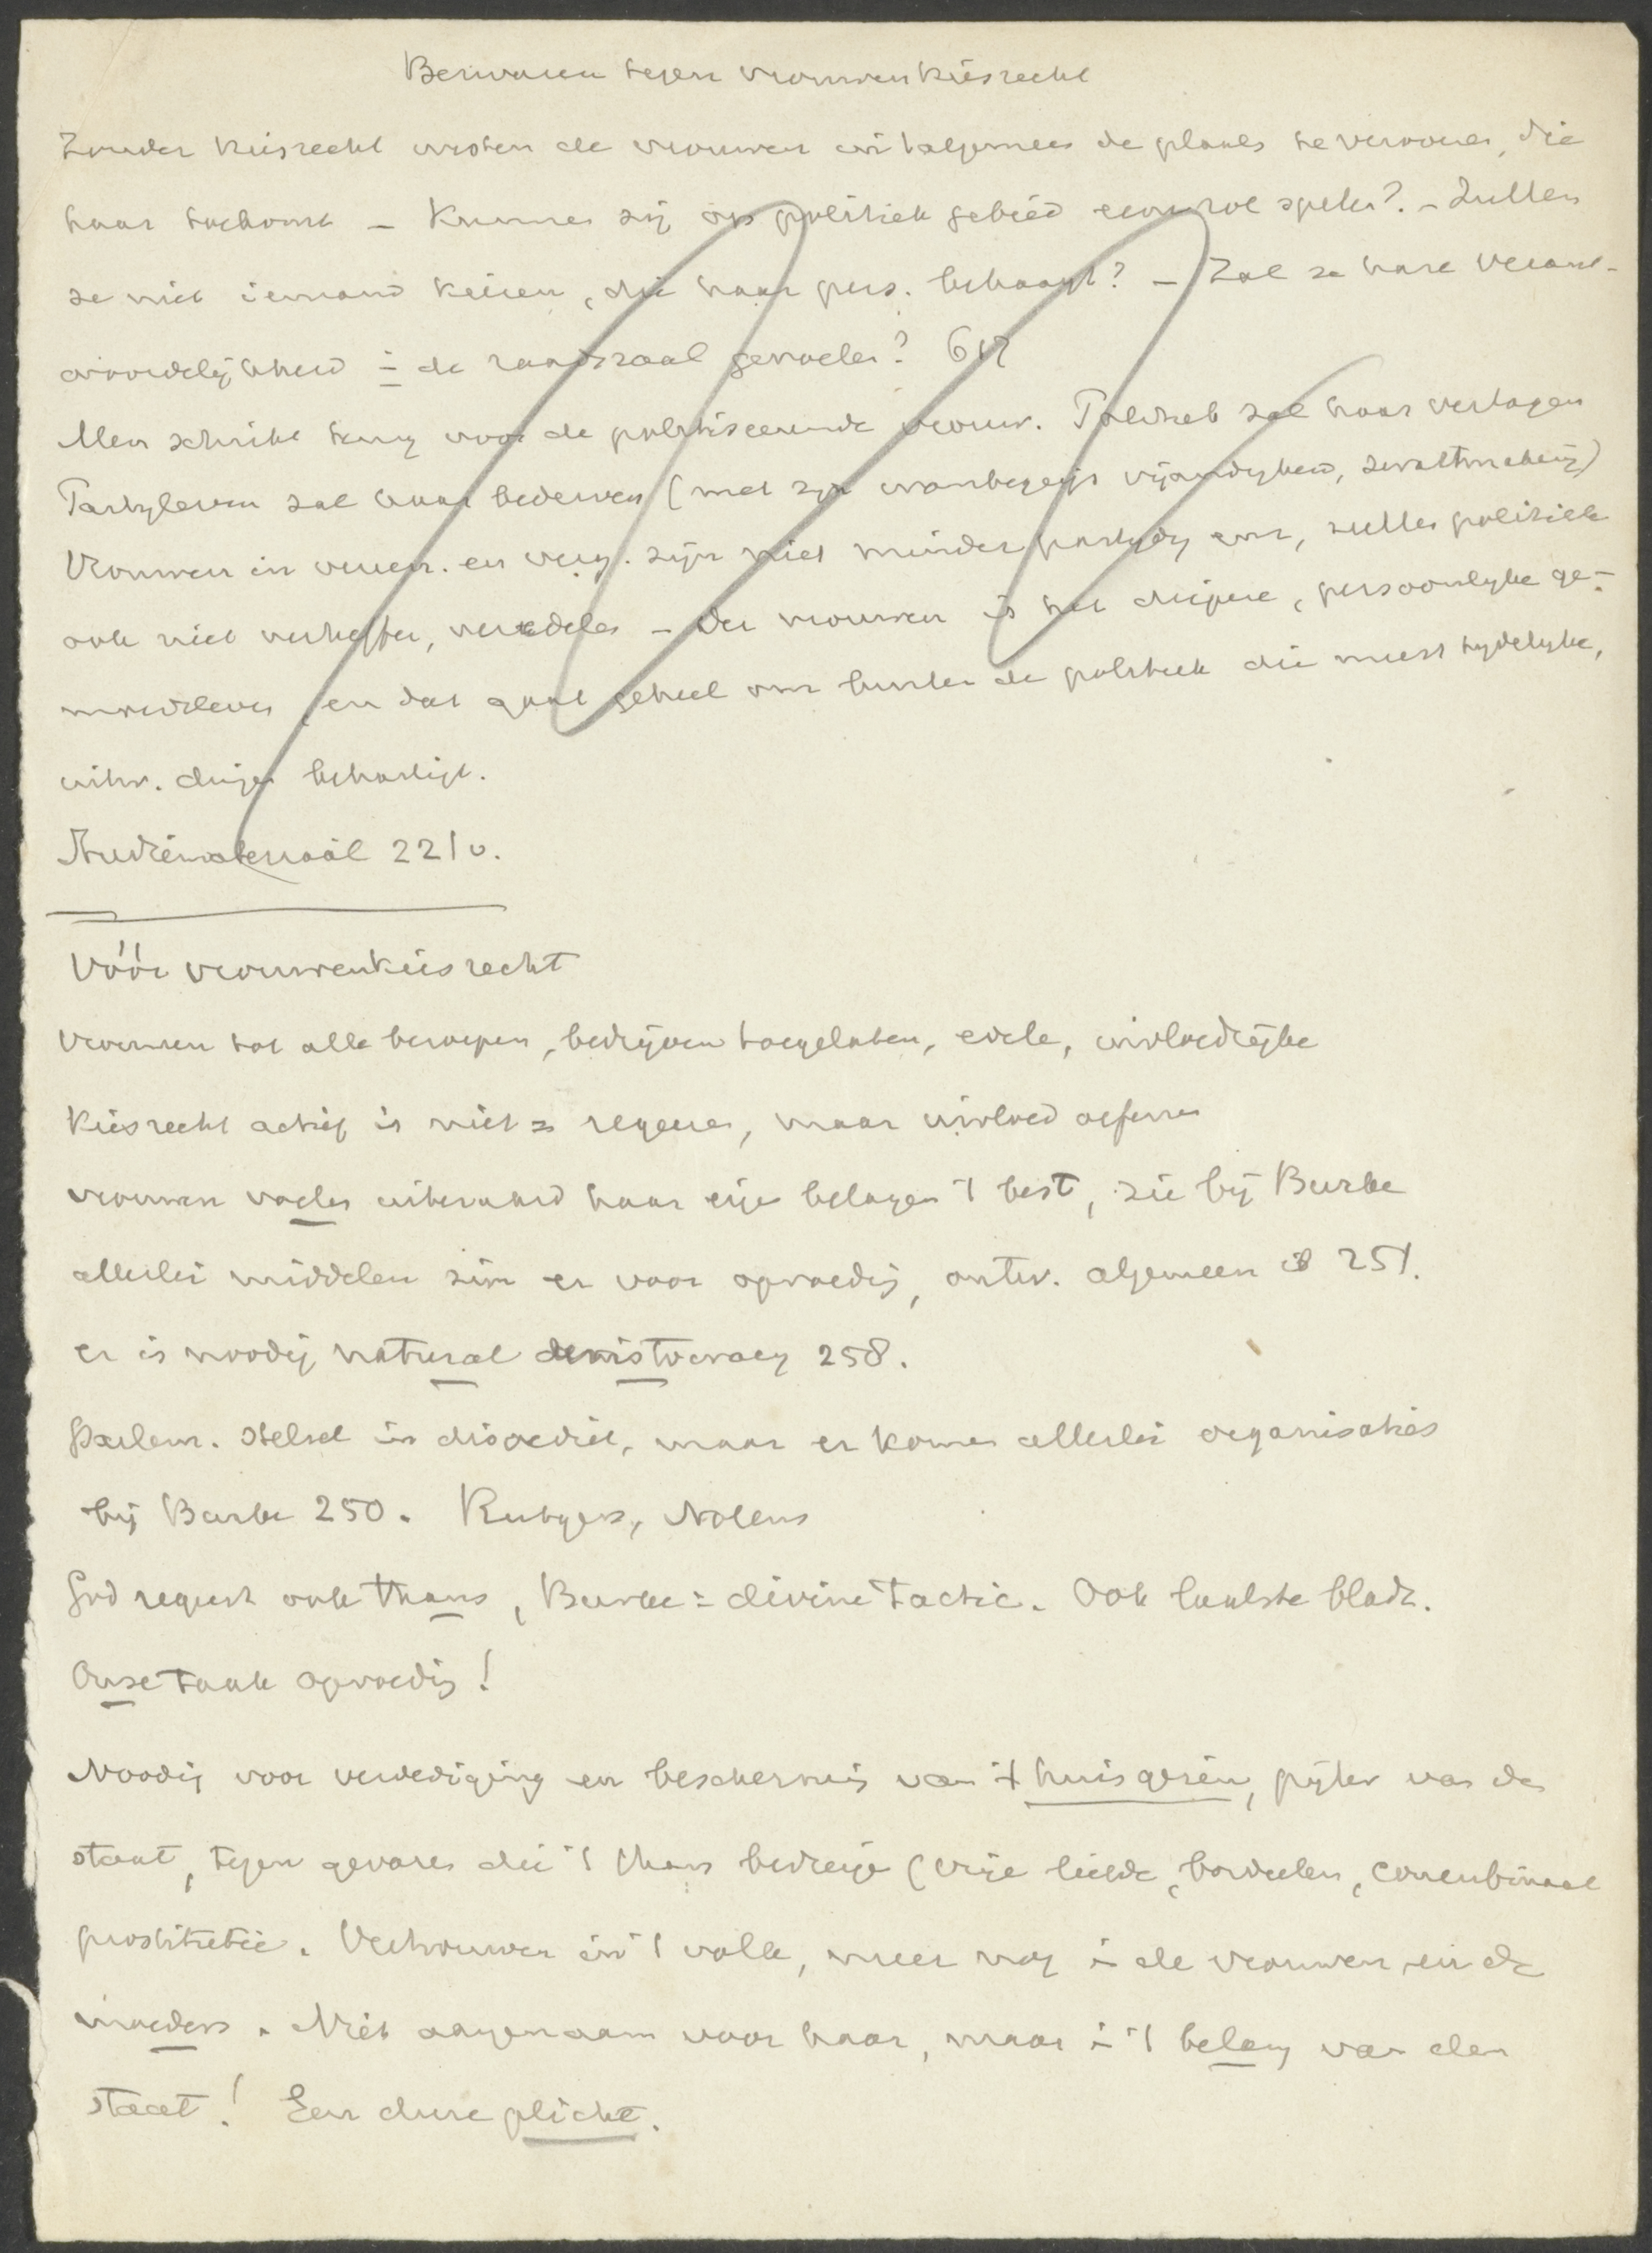 Bezwaren tegen vrouwenkiesrecht
Zonder kiesrecht wisten de vrouwen in 't algemeen de plaats te veroveren, die
haar toekomt – Kunnen zij op politiek gebied een rol spelen? – Zullen
ze niet iemand kiezen, die haar pers. behaagt? – Zal ze hare verant-
woordelijkheid in de raadszaal gevoelen? 617
Men schrikt terug voor de politiseerende vrouw. Politiek zal haar verlagen
Partyleven zal haar bederven (met zijn wanbegrip vijandigheid,
Vrouwen in vereen. en verg. zijn niet minder partydig enz, zullen politiek
ook niet verheffen, veredelen – Der vrouwen is het diepere, persoonlyke ge-
moedsleven, en dat gaat geheel om buiten de politiek die meest tydelyke,
uitw. dingen behartigt.
Studiemateriaal 221v.
Vóór vrouwenkiesrecht
Vrouwen tot alle beroepen, bedrijven toegelaten, edele, invloedrijke
Kiesrecht actief is niet = regeeren, maar invloed oefenen
vrouwen voelen uiteraard haar eigen belangen 't best, zie bij Burke
allerlei middelen zijn er voor opvoeding, ontw. algemeen is 251.
er is noodig natural aristocracy 258.
Parlem. stelsel in discrediet, maar er komen allerlei organisaties
bij Burke 250. Rutgers, Nolens
God regeert ook thans, Burke = divine tactic. Ook laatste bladz.
Onze taak opvoeding!
Noodig voor verdediging en bescherming van 't huisgezin, pijler van den
staat, tegen gevaren die 't thans bedreigen (vrije liefde, bordeelen, concubinaat
prostitutie. Vertrouwen in 't volk, meer nog in de vrouwen, en de
moeders. Niet aangenaam voor haar, maar in 't belang van den
staat! Een dure plicht.